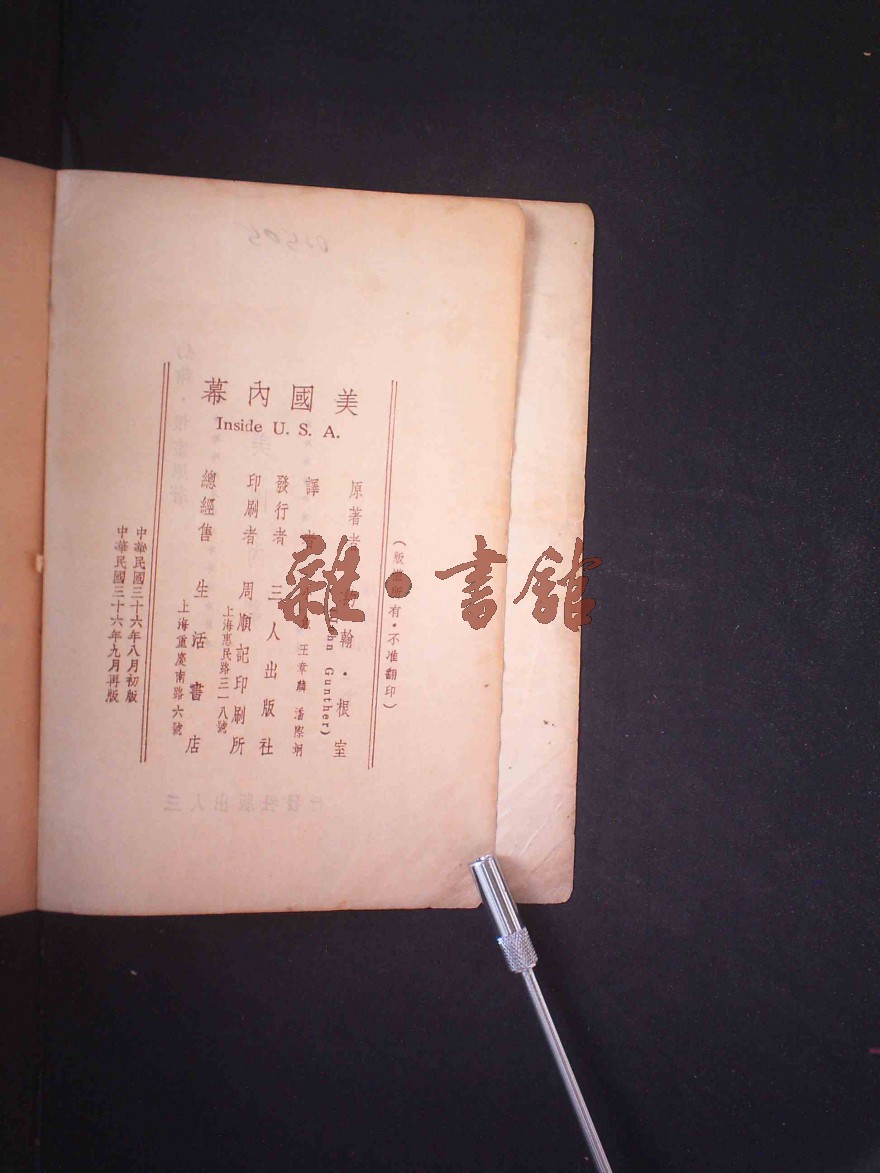 美國內幕
Inside U. S. A.
(版權所有·不准翻印)
原著者 約翰·根室
(John Gunther)
譯者 王章麟 潘際坰
發行者 三人出版社
印刷者 周順記印刷所
上海惠民路三一八號
總經售 生活書店
上海重慶南路六號
中華民國三十六年八月初版
中華民國三十六年九月再版
雜·書館
三人出版社發行